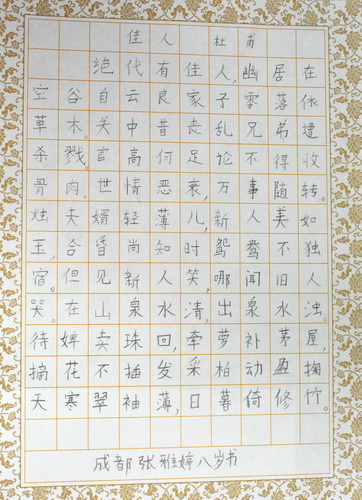 佳人 杜甫
绝代有佳人,幽居在
空谷自云良家子零落依
草木。关中昔丧乱兄弟遭
杀戮。官高何足论不得收
骨肉。世情恶衰,万事随转。
烛夫婿轻薄儿,新人美如
玉,合昏尚知时鸳鸯不独
宿。但见新人笑,哪闻旧人
哭。在山泉水清,出泉水浊。
待婢卖珠回,牵萝补茅屋,
摘花不插发采柏动盈掬
天寒翠袖薄,日暮倚修竹。
成都张雅婷八岁书